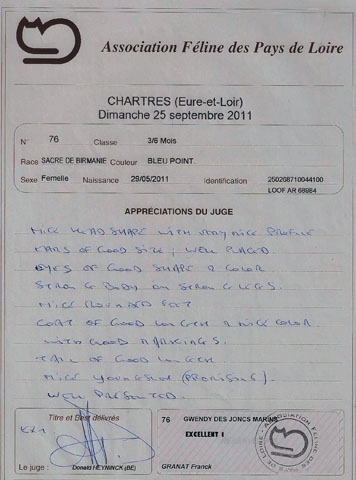 Association Féline des Pays de Loire
CHARTRES (Eure-et-Loir)
Dimanche 25 septembre 2011
N° 76 Classe 3/6 Mois
Race SACRE DE BIRMANIE Couleur BLEU POINT
Sexe Femelle Naissance 29/05/2011 Identification 250268710044100
LOOF AR 68984
APPRÉCIATIONS DU JUGE
NICE HEAD SHAPE WITH VERY NICE PROFILE
EARS OF GOOD SIZE, WELL PLACED
EYES OF GOOD SHAPE & COLOR
STRONG BODY ON STRONG LEGS.
NICE ROUNDED FEET
COAT OF GOOD LENGTH & NICE COLOR
WITH GOOD MARKINGS.
TAIL OF GOOD LENGTH
NICE YOUNGSTER (PROMISING).
WELL PRESENTED.
Titre et Best délivrés
EX1
Le juge : Donald HEYNINCK (BE)
76 GWENDY DES JONCS MARINS
EXCELLENT 1
GRANAT Franck
ASSOCIATION FÉLINE DES PAYS DE LOIRE